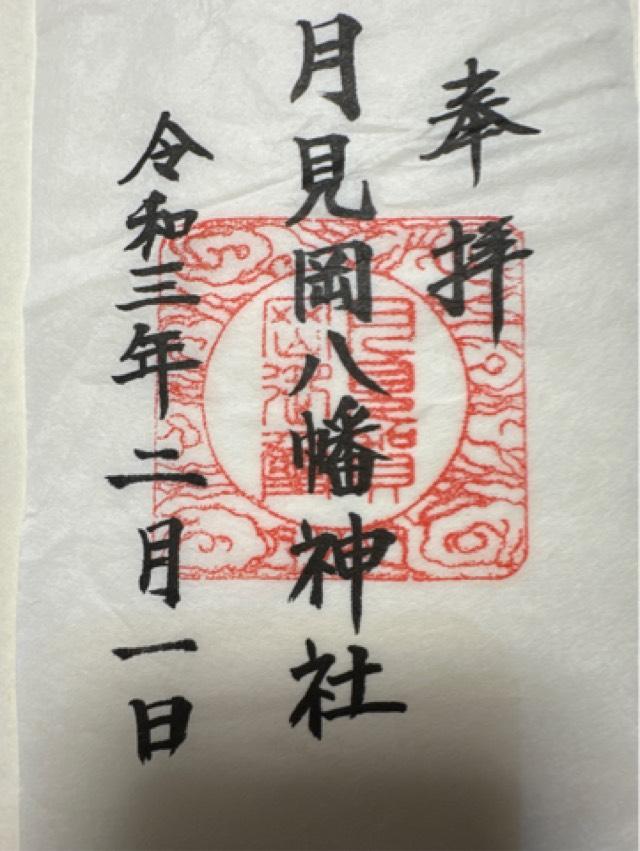 奉拝
月見岡八幡神社
令和三年二月一日